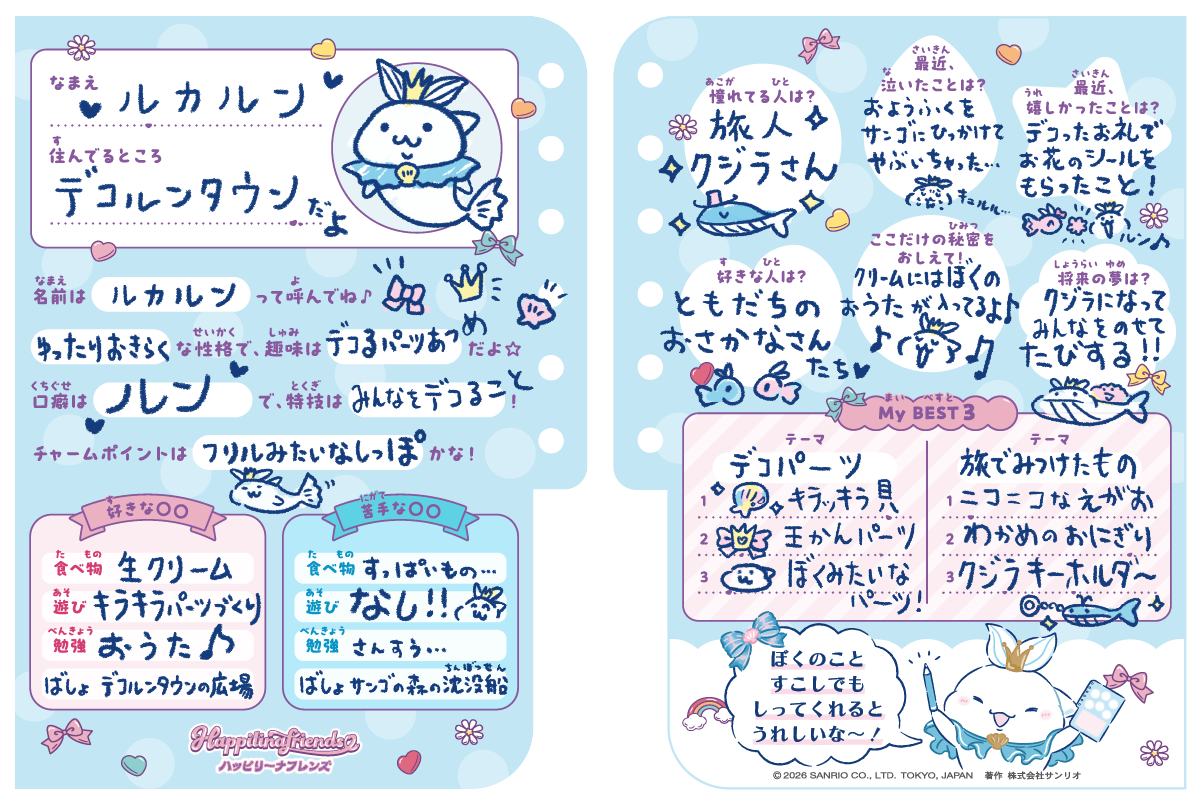 なまえ
ルカルン
す
住んでるところ
デコルンタウンだよ
なまえ よ
名前は ルカルン って呼んでね♪
せいかく しゅみ
ゆったりおきらく な性格で、趣味は デコるパーツあつめ だよ☆
くちぐせ とくぎ
口癖は ルン で、特技は みんなをデコること!
チャームポイントは フリルみたいなしっぽ かな!
す
好きな〇〇
た もの
食べ物 生クリーム
あそ
遊び キラキラパーツづくり
べんきょう
勉強 おうた♪
ばしょ デコルンタウンの広場
にがて
苦手な〇〇
た もの
食べ物 すっぱいもの…
あそ
遊び なし!!
べんきょう
勉強 さんすう…
ちんぼつせん
ばしょ サンゴの森の沈没船
Happilinafriends
ハッピリーナフレンズ
あこが ひと
憧れてる人は?
旅人
クジラさん
さいきん
最近、
な
泣いたことは?
おようふくを
サンゴにひっかけて
やぶいちゃった…
キュルル…
さいきん
最近、
うれ
嬉しかったことは?
デコったお礼で
お花のシールを
もらったこと!
ルン♪
す ひと
好きな人は?
ともだちの
おさかなさん
たち
ひみつ
ここだけの秘密を
おしえて!
クリームにはぼくの
おうたが入ってるよ♪
しょうらい ゆめ
将来の夢は?
クジラになって
みんなをのせて
たびする!!
まい べすと
My BEST 3
テーマ
デコパーツ
1 キラッキラ貝
2 王かんパーツ
3 ぼくみたいな
パーツ!
テーマ
旅でみつけたもの
1 ニコニコなえがお
2 わかめのおにぎり
3 クジラキーホルダ〜
ぼくのこと
すこしでも
しってくれると
うれしいな〜!
© 2026 SANRIO CO., LTD. TOKYO, JAPAN 著作 株式会社サンリオ